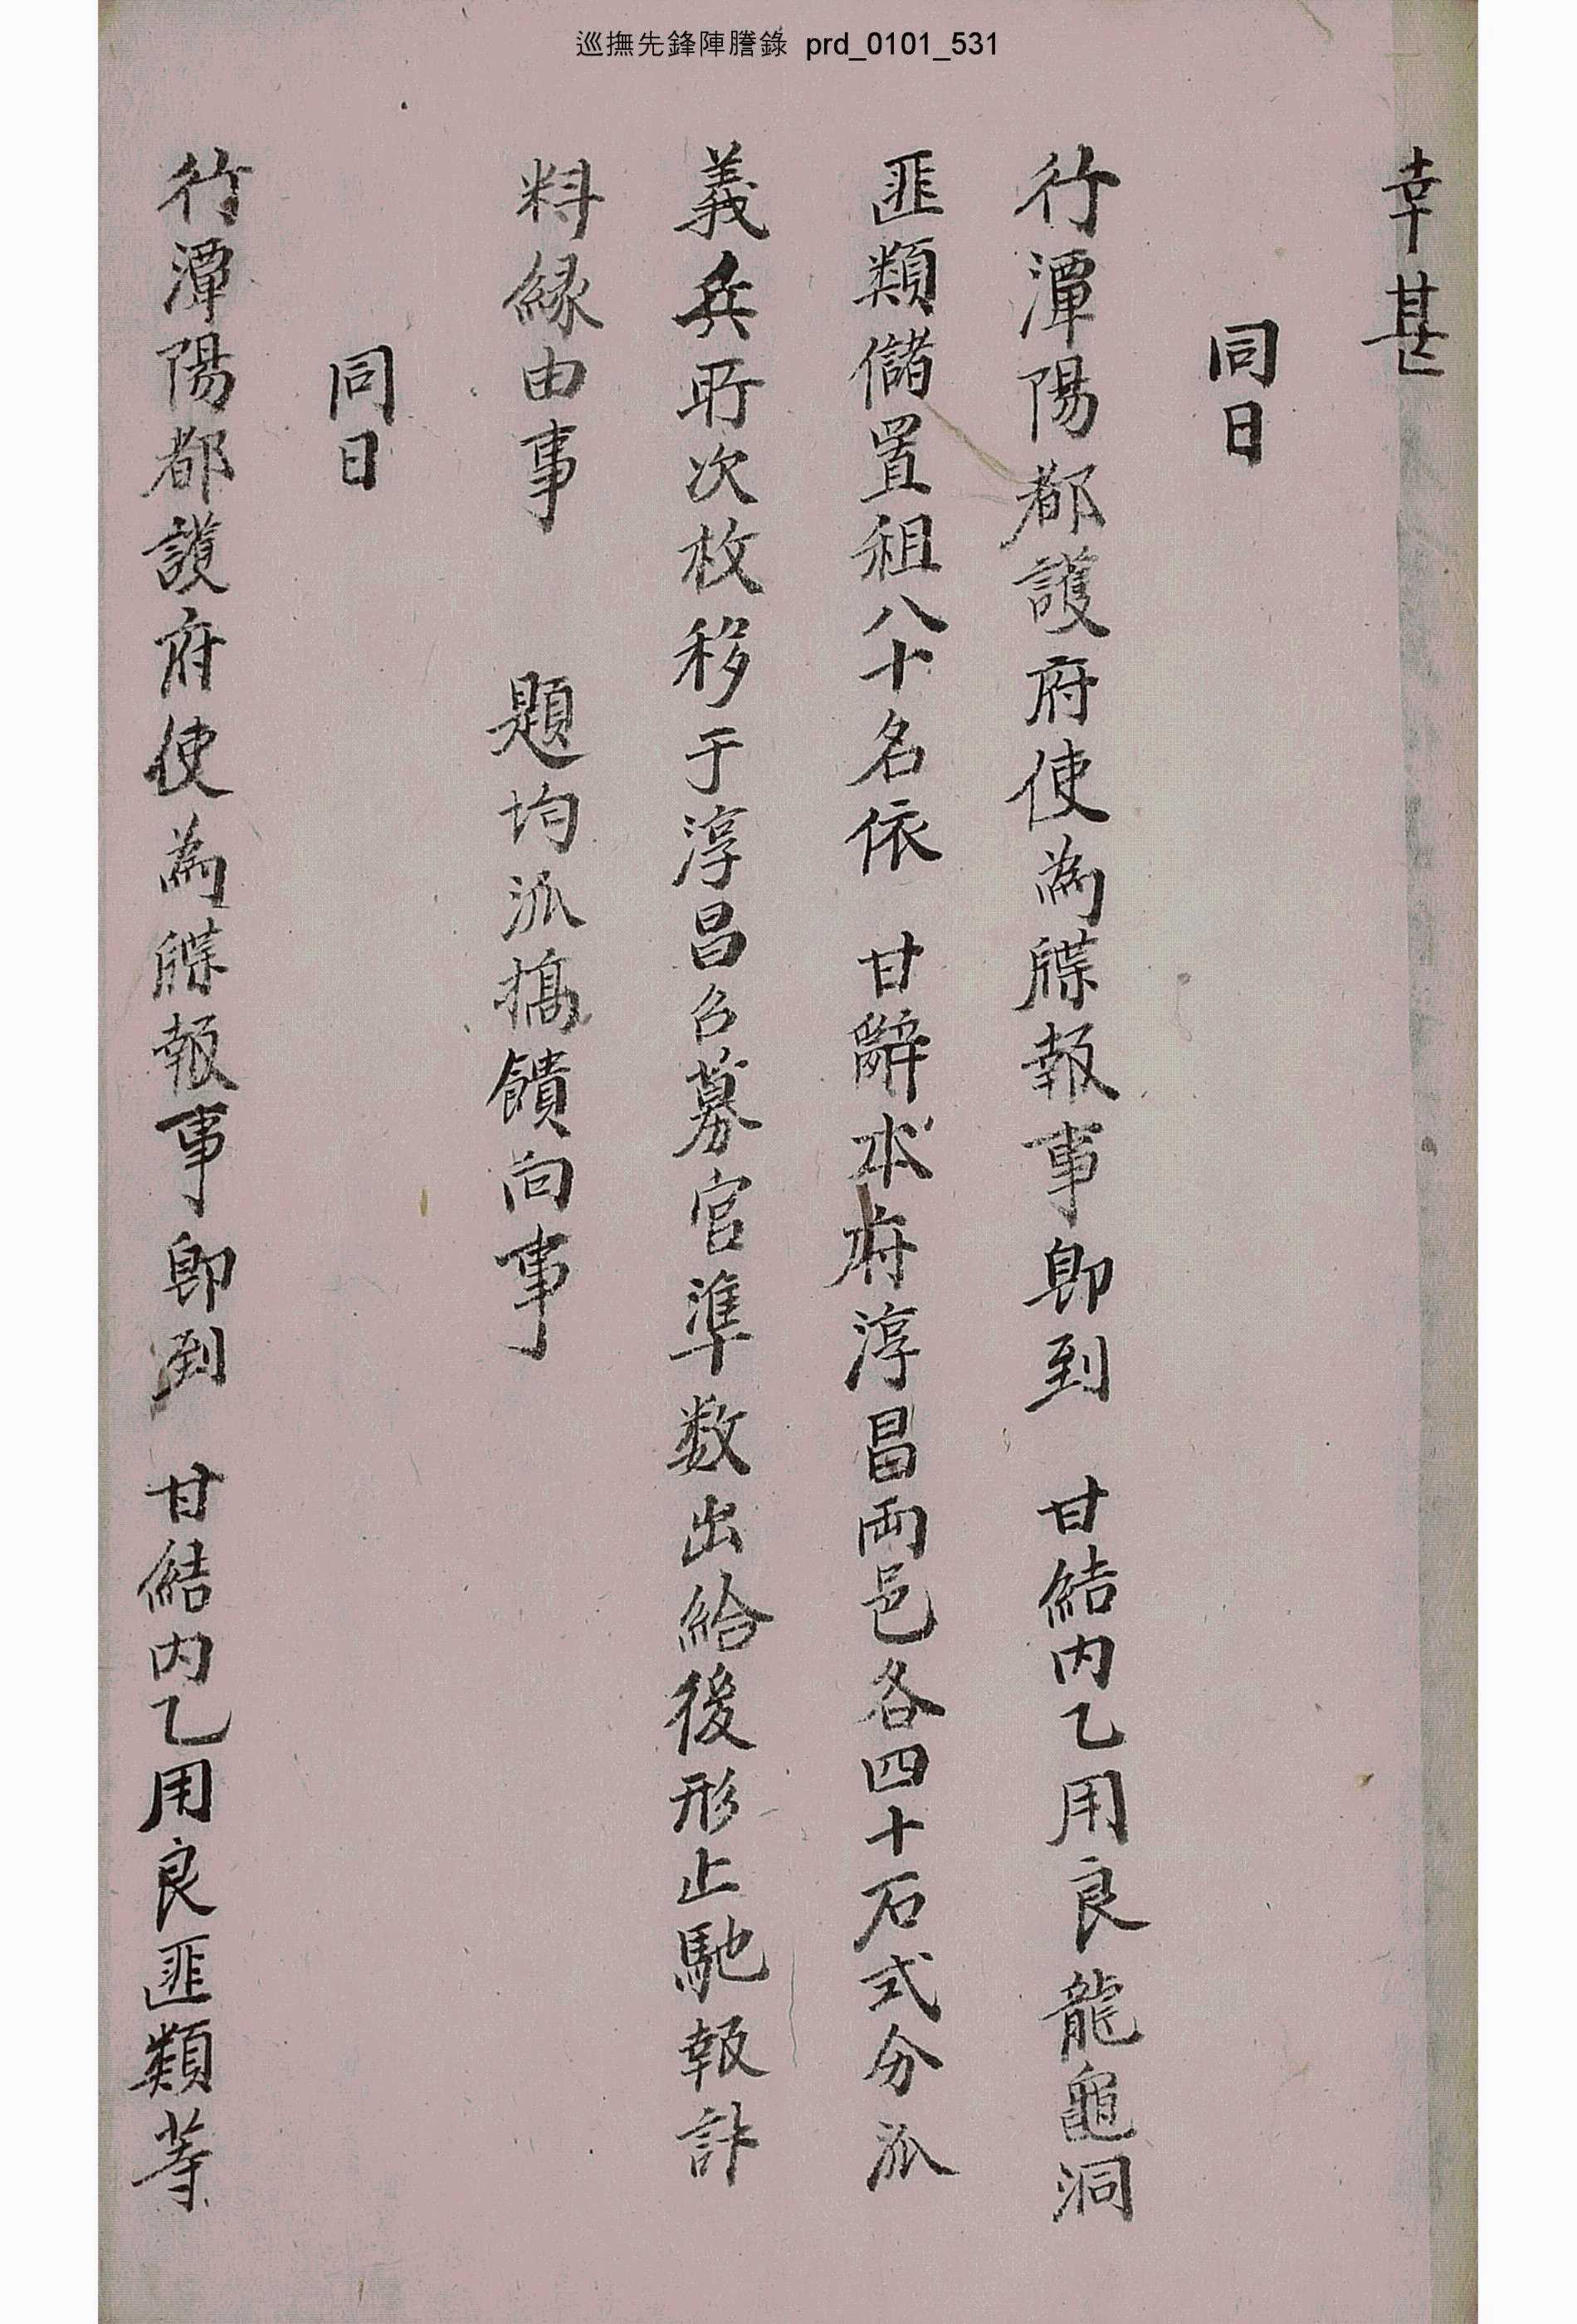 巡撫先鋒陣謄錄 prd_0101_531
幸甚
同日
行潭陽都護府使為牒報事卽到 甘結內乙用良龍龜洞
匪類儲置租八十名依 甘辭本府淳昌両邑各四十石式分派
義兵所次枚移于淳昌召募官準数出給後形止馳報計
料緣由事 題均派犒饋向事
同日
行潭陽都護府使為牒報事卽到 甘結內乙用良匪類等